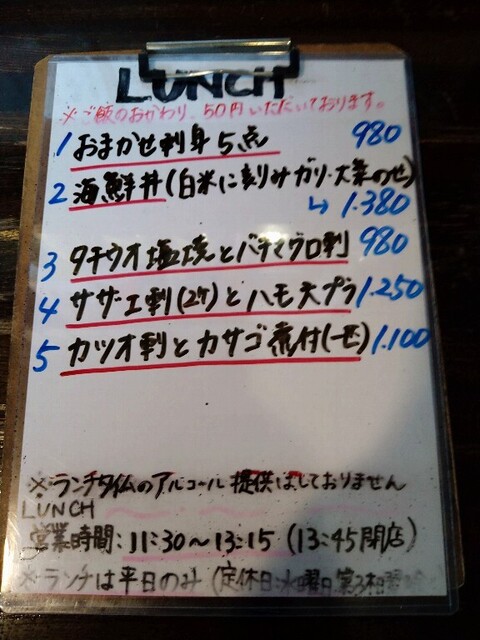 LUNCH
※ご飯のおかわり、50円いただいております。
1 おまかせ刺身5点 980
2 海鮮丼(白米に刻みガリ・大葉のせ)
↳ 1.380
3 タチウオ塩焼とバチマグロ刺 980
4 サザエ刺(2ケ)とハモ天プラ 1.250
5 カツオ刺とカサゴ煮付(一匹) 1.100
※ランチタイムのアルコール提供はしておりません
LUNCH
営業時間:11:30〜13:15 (13:45閉店)
※ランチは平日のみ (定休日:水曜日 第3